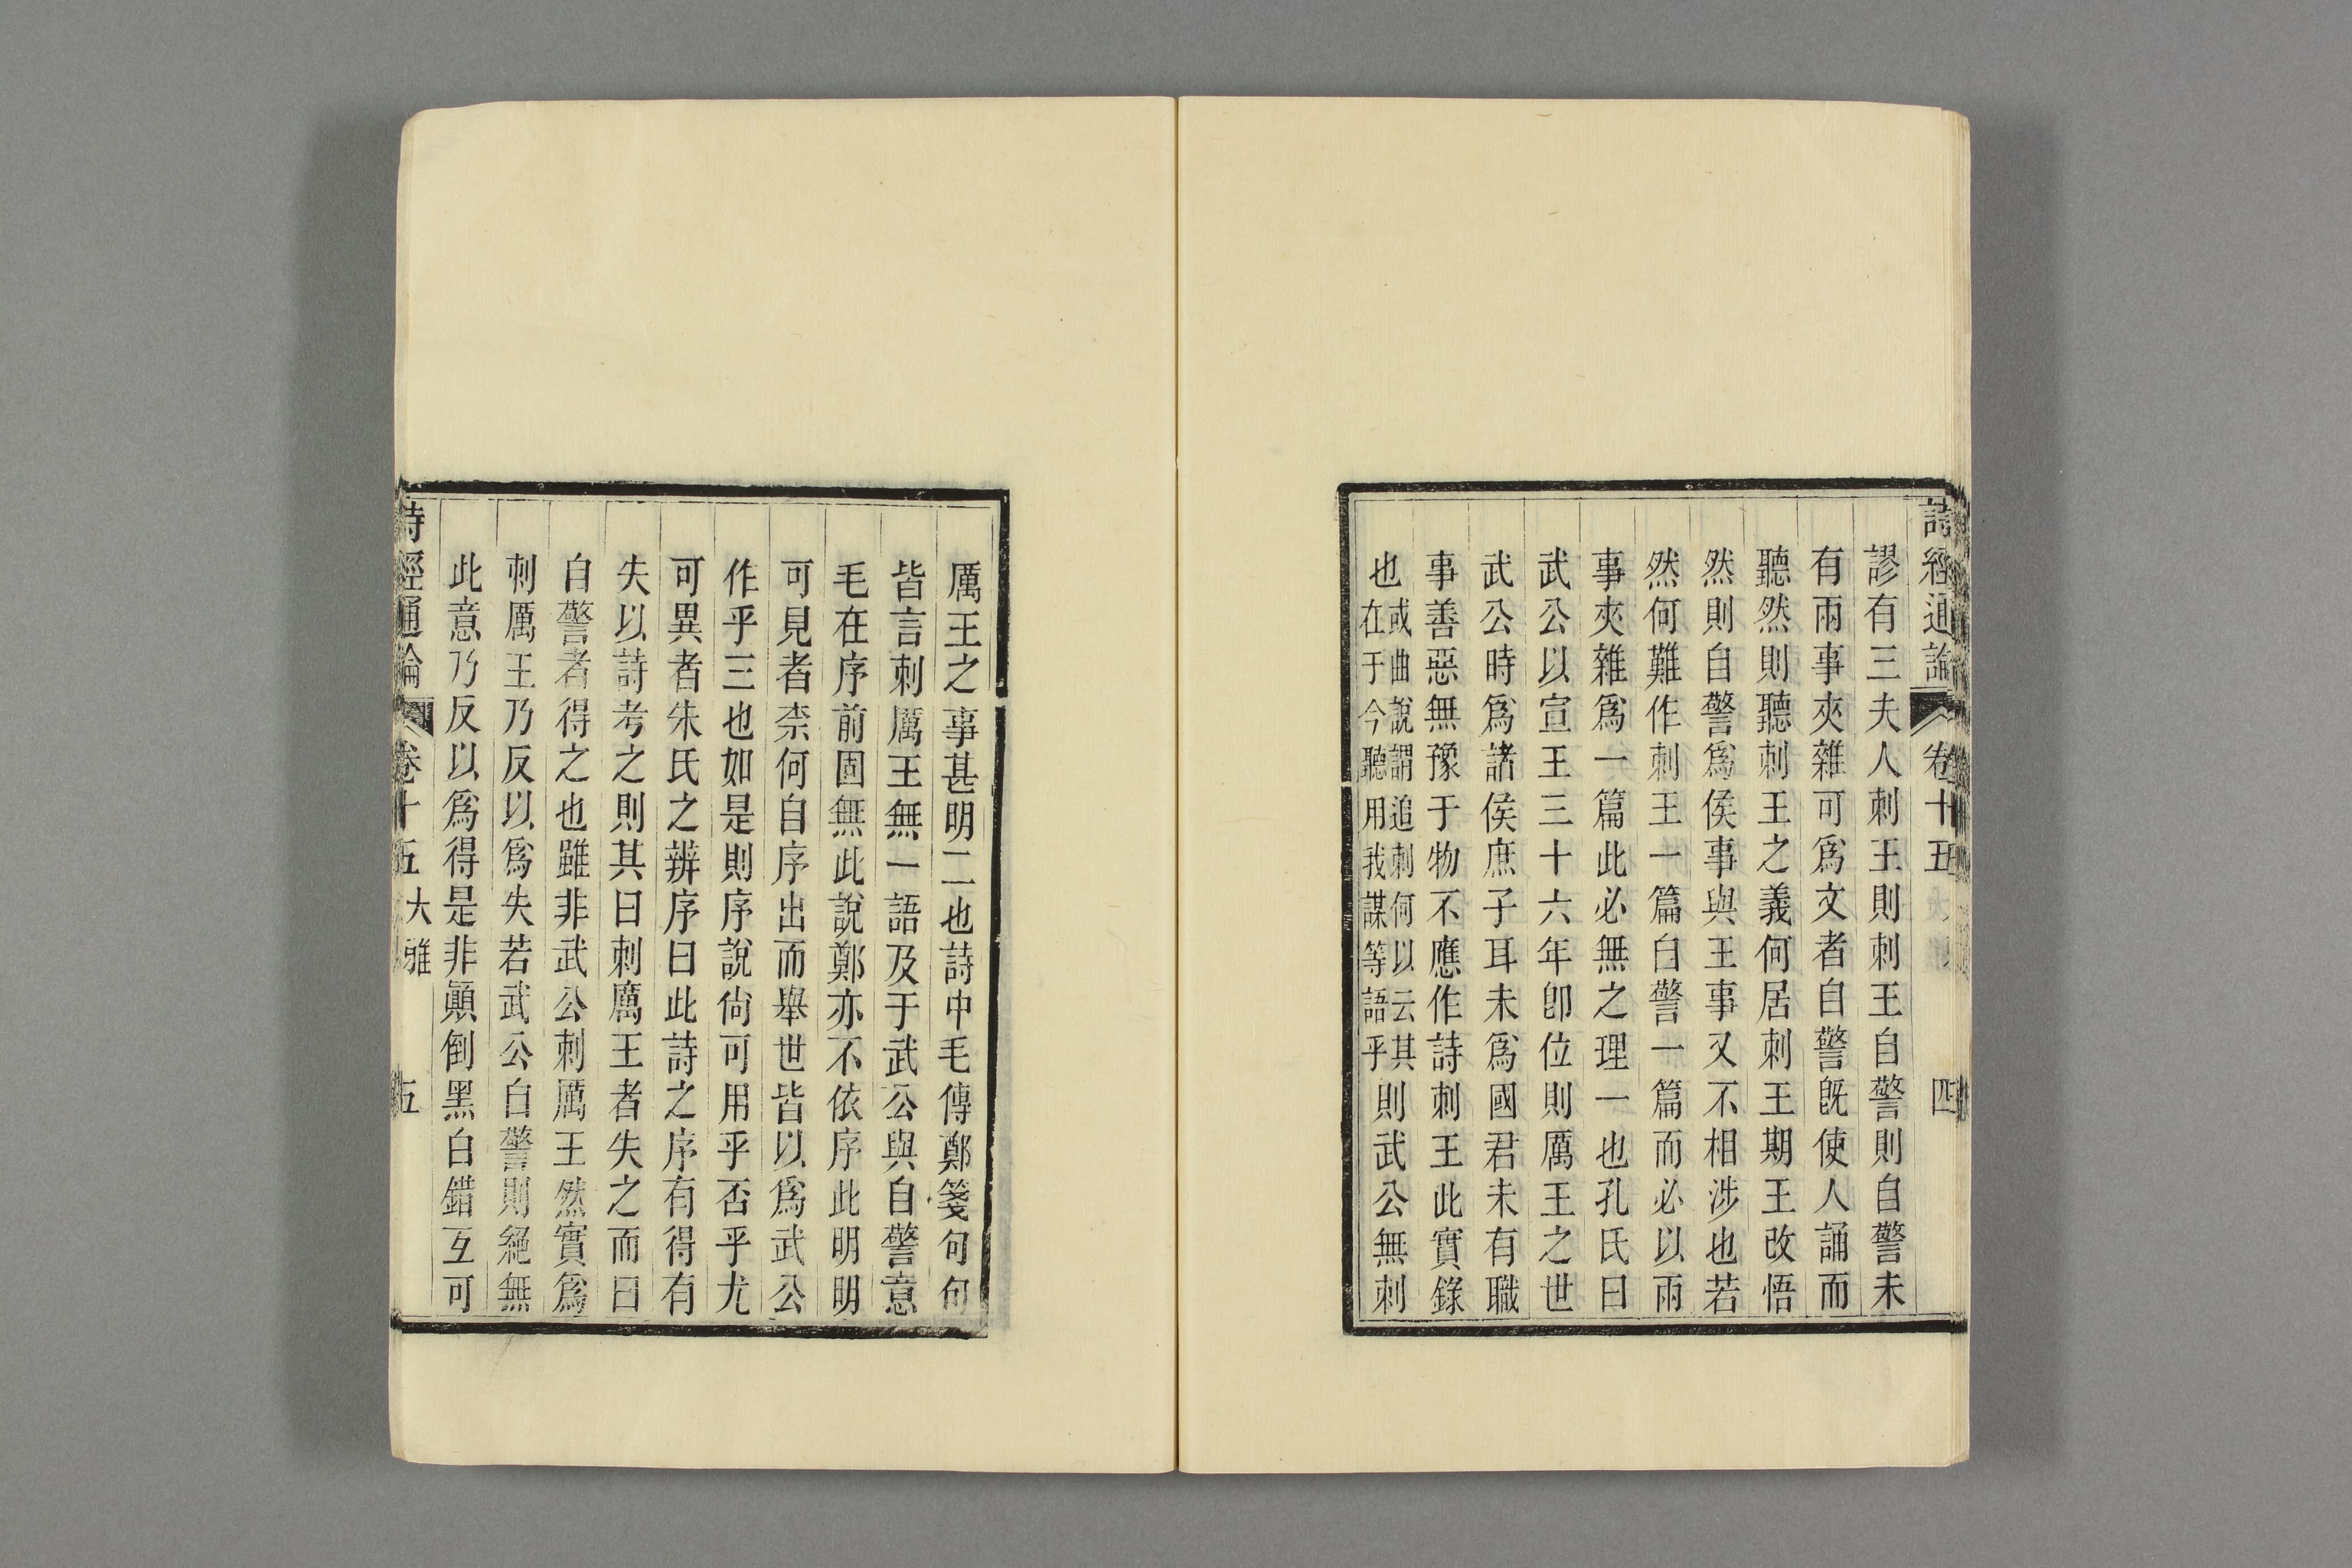 詩經通論 卷十五 四
謬有三夫人刺王則刺王自警則自警未
有兩事夾雜可爲文者自警旣使人誦而
聽然則聽刺王之義何居刺王期王改悟
然則自警爲侯事與王事又不相涉也若
然何難作刺王一篇自警一篇而必以兩
事夾雜爲一篇此必無之理一也孔氏曰
武公以宣王三十六年卽位則厲王之世
武公時爲諸侯庶子耳未爲國君未有職
事善惡無豫于物不應作詩刺王此實錄
也或曲說謂追刺何以云其在于今聽用我謀等語乎則武公無刺
厲王之事甚明二也詩中毛傳鄭箋句句
皆言刺厲王無一語及于武公與自警意
毛在序前固無此說鄭亦不依序此明明
可見者柰何自序出而舉世皆以爲武公
作乎三也如是則序說尙可用乎否乎尤
可異者朱氏之辨序曰此詩之序有得有
失以詩考之則其曰刺厲王者失之而曰
自警者得之也雖非武公刺厲王然實爲
刺厲王乃反以爲失若武公自警則絕無
此意乃反以爲得是非顚倒黑白錯互可
詩經通論 卷十五 大雅 五